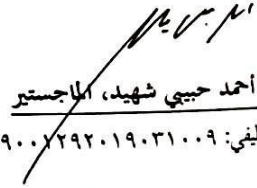 أحمد حبيبي شهيد، الماجستير
ليفي: ٩٠٠٧٢٩٢٠١٩٠٣١٠٠٩